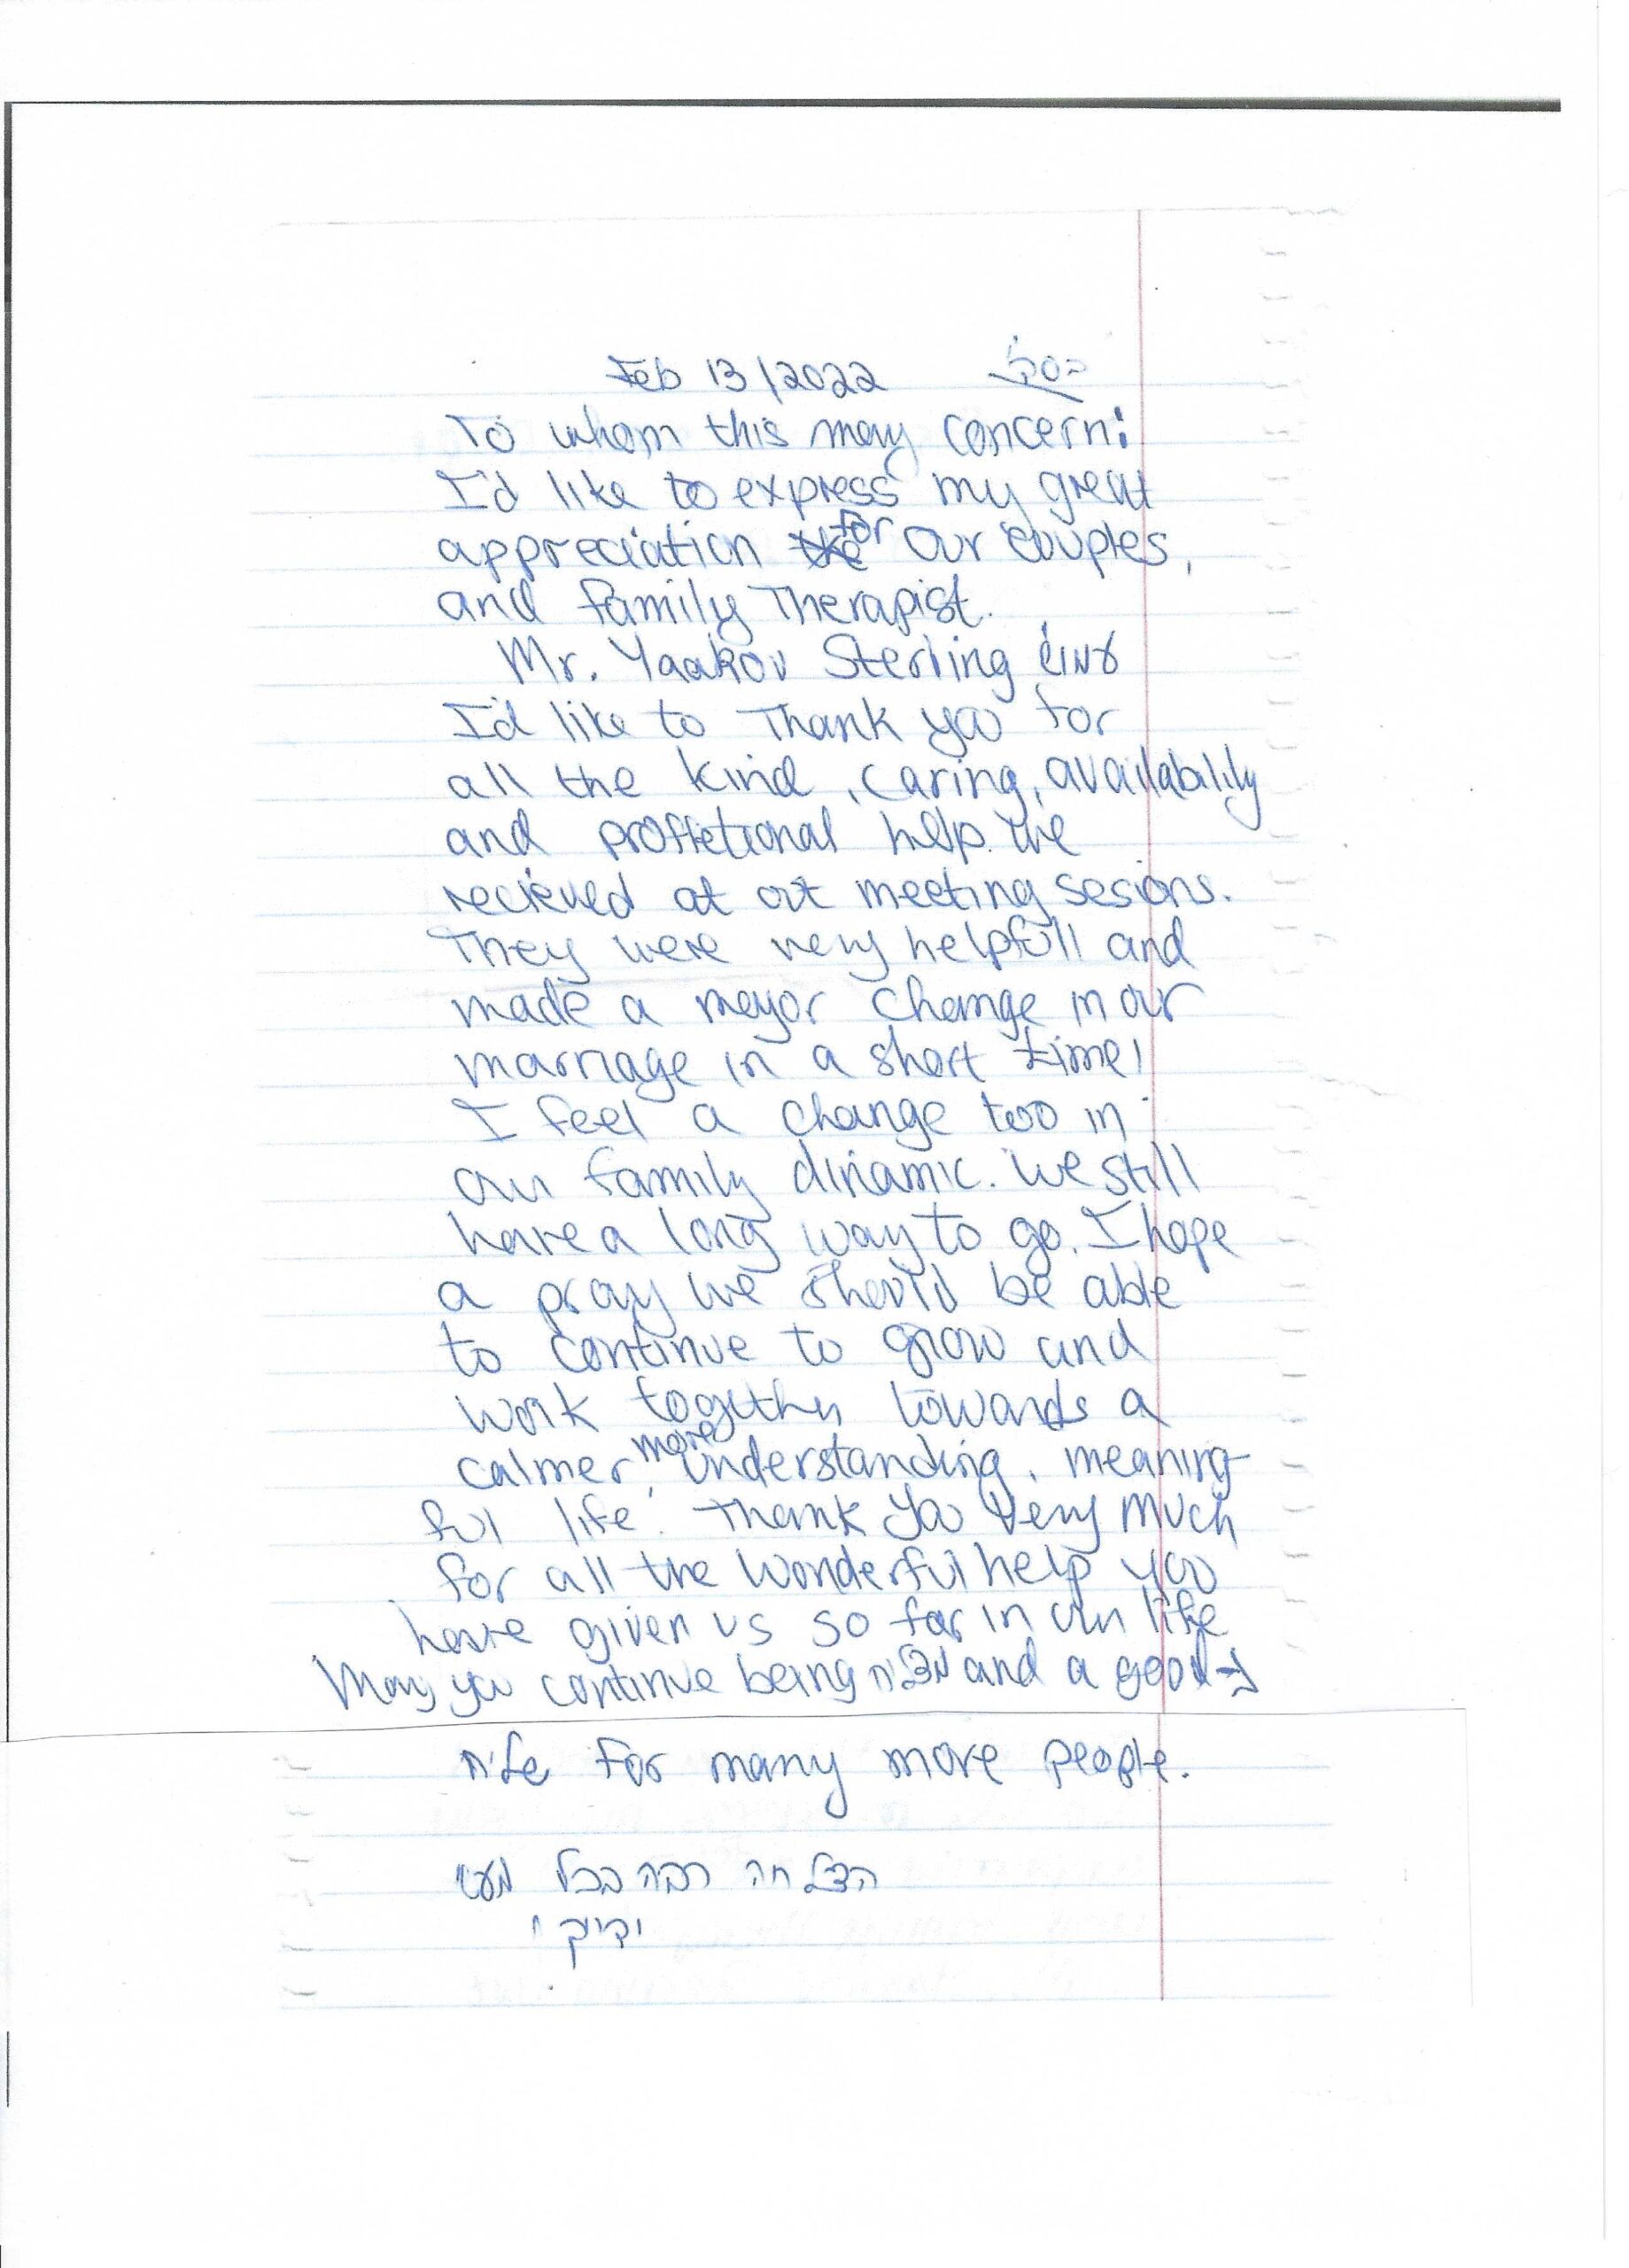 Feb 13/2022 בס"ד
To whom this may concern:
I'd like to express my great
appreciation for our couples,
and family Therapist.
Mr. Yaakov Sterling עמו"ש
I'd like to Thank you for
all the kind, caring, availability
and proffetional help we
recieved at out meeting sesions.
They were very helpfull and
made a meyor change in our
marriage in a short time!
I feel a change too in
our family dinamic. We still
have a long way to go. I hope
a pray we should be able
to continue to grow and
work together towards a
calmer, more understanding, meaning-
ful life. Thank you very much
for all the wonderful help you
have given us so far in our life
May you continue being מצליח and a good →
שליח for many more people.
הצלחה רבה בכל מעשי
ידיך